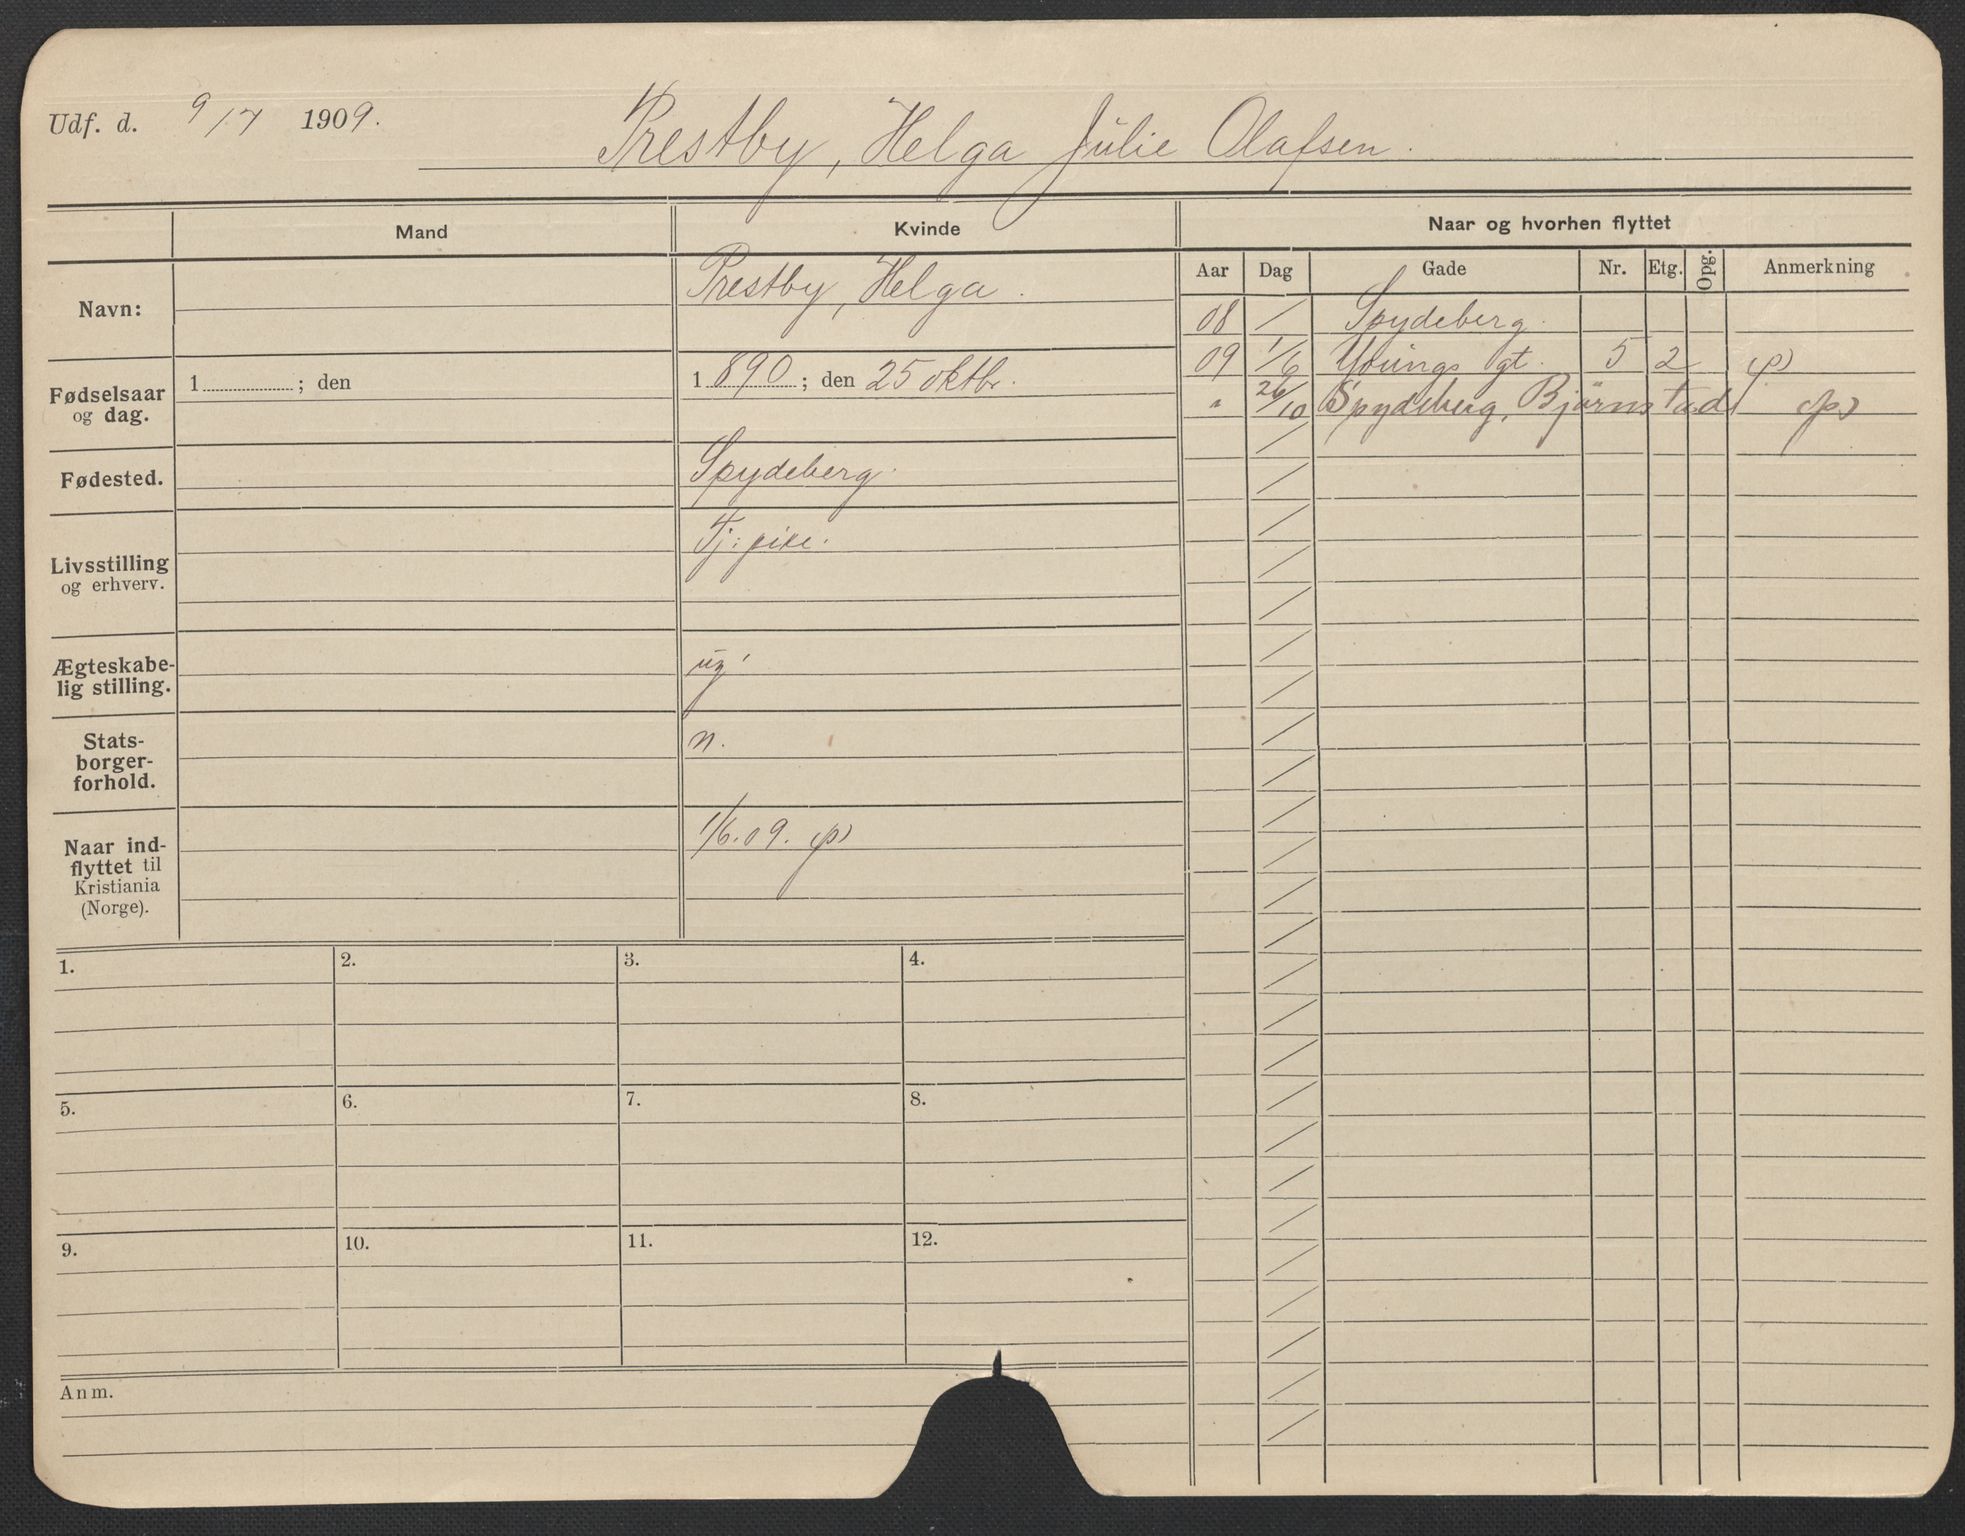 Udf. d. 9/7 1909. Prestby, Helga Julie Olafsen.
Mand Kvinde Naar og hvorhen flyttet
Aar Dag Gade Nr. Etg. Opg. Anmerkning
Navn: Prestby, Helga.
Fødselsaar og dag. 1 ; den 1 890 ; den 25 oktbr.
Fødested. Spydeberg.
Livsstilling og erhverv. Tj: pike.
Ægteskabe-
lig stilling. ug.
Stats-
borger-
forhold. n.
Naar ind-
flyttet til
Kristiania
(Norge). 1/6.09. (p)
08 / Spydeberg.
09 1/6 Youngs gt. 5 2 (p)
" 26/10 Spydeberg, Bjørnstad (p)
1. 2. 3. 4.
5. 6. 7. 8.
9. 10. 11. 12.
Anm.